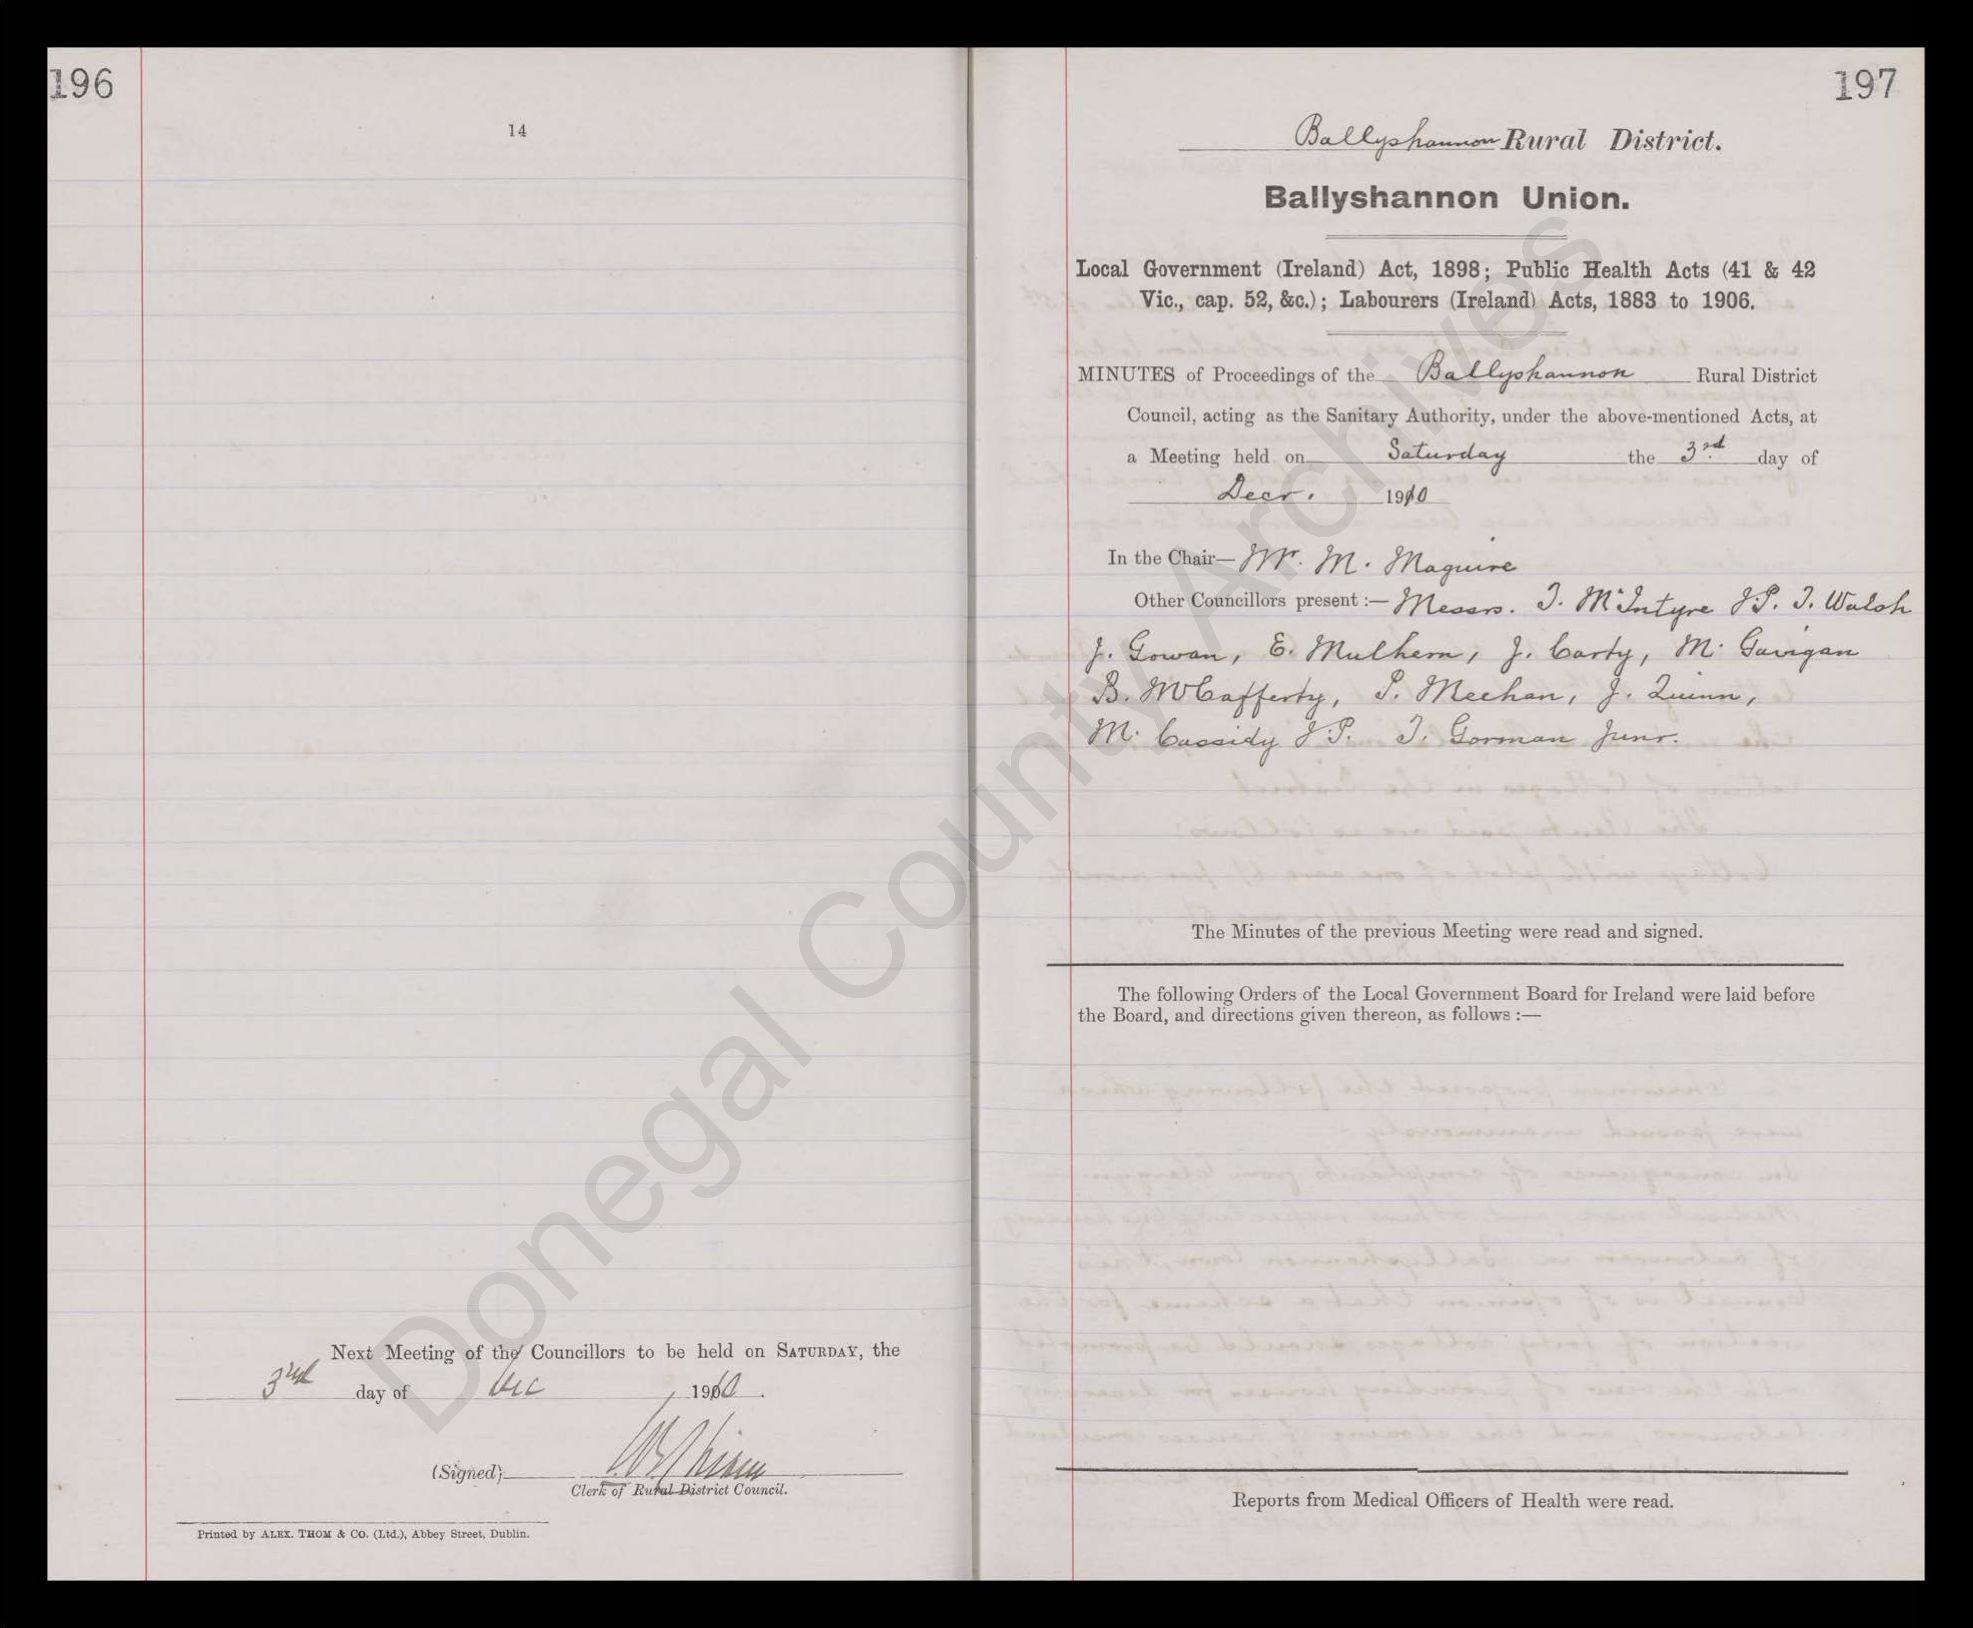 196
14
Next Meeting of the Councillors to be held on SATURDAY, the
3rd day of Dec 1910.
(Signed)
Clerk of Rural District Council.
Printed by ALEX. THOM & CO. (Ltd.), Abbey Street, Dublin.
197
Ballyshannon Rural District.
Ballyshannon Union.
Local Government (Ireland) Act, 1898; Public Health Acts (41 & 42
Vic., cap. 52, &c.); Labourers (Ireland) Acts, 1883 to 1906.
MINUTES of Proceedings of the Ballyshannon Rural District
Council, acting as the Sanitary Authority, under the above-mentioned Acts, at
a Meeting held on Saturday the 3rd day of
Decr. 1910
In the Chair— Mr. M. Maguire
Other Councillors present :— Messrs. T. McIntyre J.P. T. Walsh
J. Gowan, E. Mulhern, J. Carty, M. Gavigan
B. McCafferty, P. Meehan, J. Quinn,
M. Cassidy J.P. T. Gorman Junr.
The Minutes of the previous Meeting were read and signed.
The following Orders of the Local Government Board for Ireland were laid before
the Board, and directions given thereon, as follows :—
Reports from Medical Officers of Health were read.
Donegal County Archives